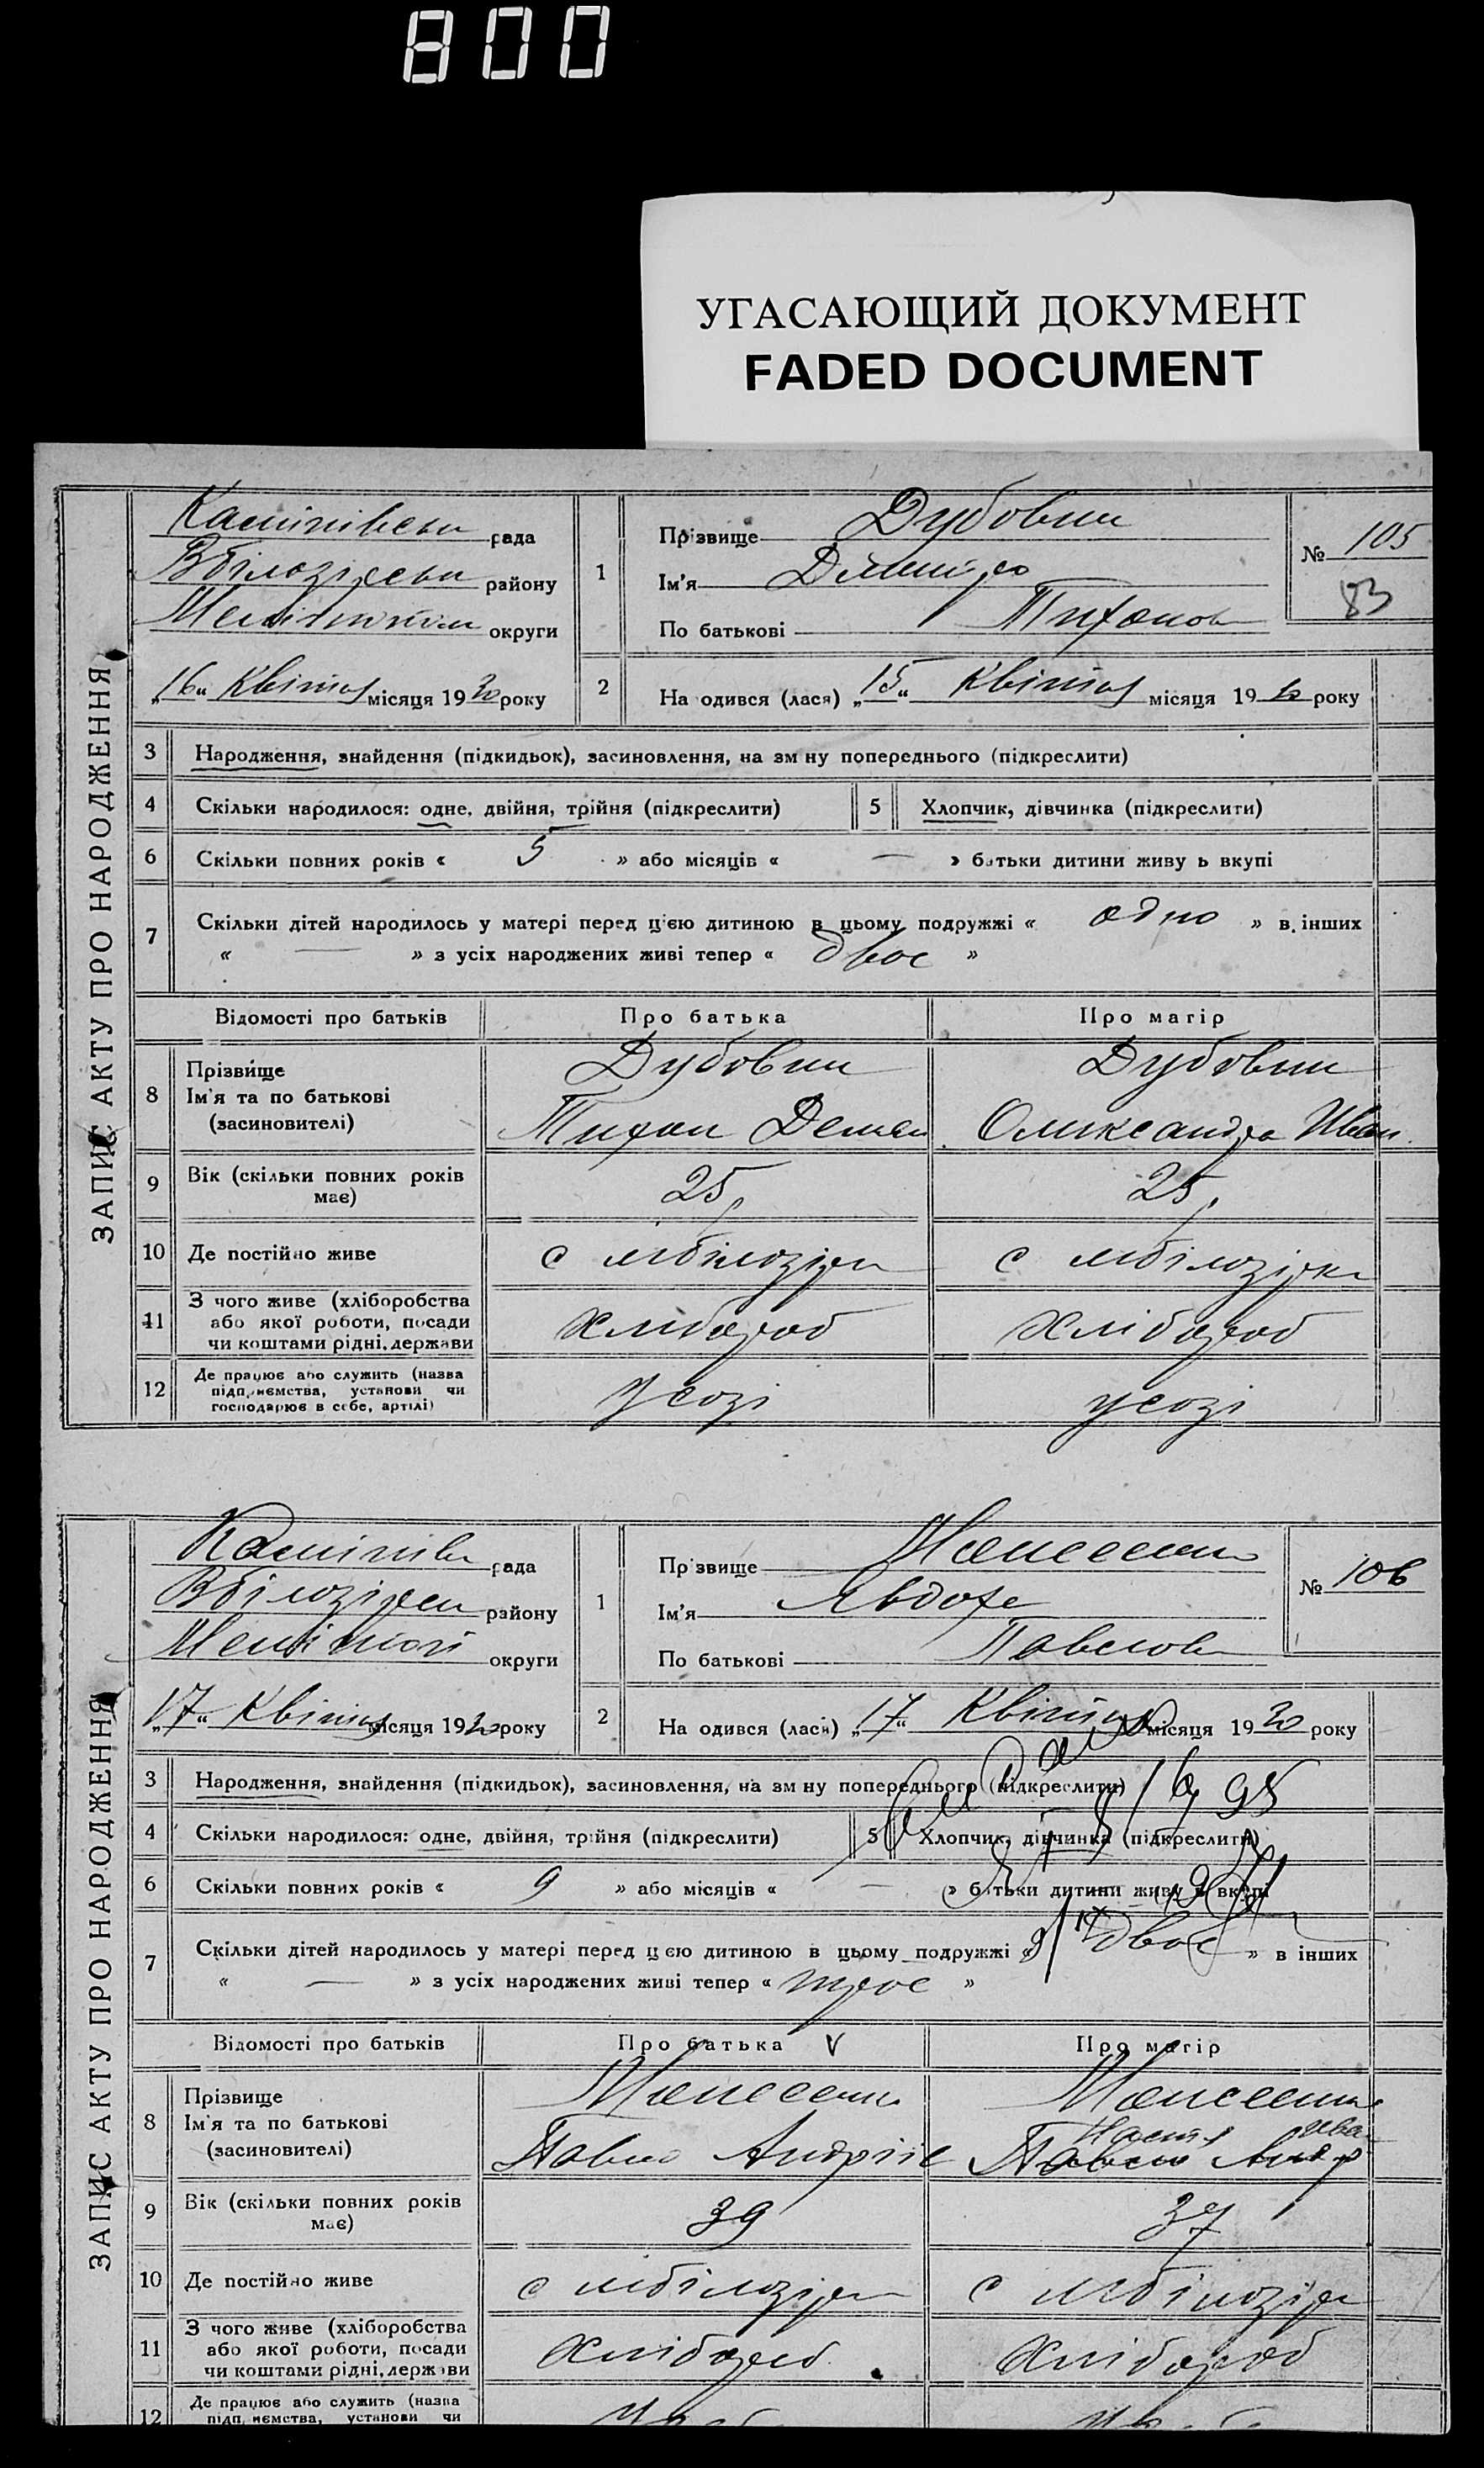 800
УГАСАЮЩИЙ ДОКУМЕНТ
FADED DOCUMENT
ЗАПИС АКТУ ПРО НАРОДЖЕННЯ
рада
району
округи
„16“ Квітня місяця 1930 року
1
Прізвище Дубовик
Ім'я Дмитро
По батькові Тихонов
№ 105
83
2 На одився (лася) „15“ Квітня місяця 1930 року
3 Народження, знайдення (підкидьок), засиновлення, на зм ну попереднього (підкреслити)
4 Скільки народилося: одне, двійня, трійня (підкреслити) 5 Хлопчик, дівчинка (підкреслити)
6 Скільки повних років « 5 » або місяців « — » батьки дитини живу ь вкупі
7 Скільки дітей народилось у матері перед цією дитиною в цьому подружжі « одно » в інших
« — » з усіх народжених живі тепер « двоє »
Відомості про батьків Про батька Про матір
8 Прізвище
Ім'я та по батькові
(засиновителі)
Дубовик
Тихон Демян
Дубовик
Олександра Иван.
9 Вік (скільки повних років
має)
25 25
10 Де постійно живе с мбілозірка с мбілозірка
11 З чого живе (хліборобства
або якої роботи, посади
чи коштами рідні, держави
хлібороб хлібороб
12 Де працює або служить (назва
підприємства, установи чи
господарює в себе, артілі)
усозі усозі
ЗАПИС АКТУ ПРО НАРОДЖЕННЯ
рада
району
округи
„17“ Квітня місяця 1930 року
1
Пр звище
Ім'я Явдоха
По батькові Павлов
№ 106
2 На одився (лася) „17“ Квітня місяця 1930 року
3 Народження, знайдення (підкидьок), засиновлення, на зм ну попереднього (підкреслити)
4 Скільки народилося: одне, двійня, трійня (підкреслити) 5 Хлопчик, дівчинка (підкреслити)
6 Скільки повних років « 9 » або місяців « — » батьки дитини живу ь вкупі
7 Скільки дітей народилось у матері перед цією дитиною в цьому подружжі « двоє » в інших
« — » з усіх народжених живі тепер « троє »
Відомості про батьків Про батька V Про матір
8 Прізвище
Ім'я та по батькові
(засиновителі)
Павло Андріїв
Настя Ива
Павло Андр
9 Вік (скільки повних років
має)
39 37
10 Де постійно живе с мбілозірка с мбілозірка
11 З чого живе (хліборобства
або якої роботи, посади
чи коштами рідні, держави
хлібороб хлібороб
12 Де працює або служить (назва
підприємства, установи чи